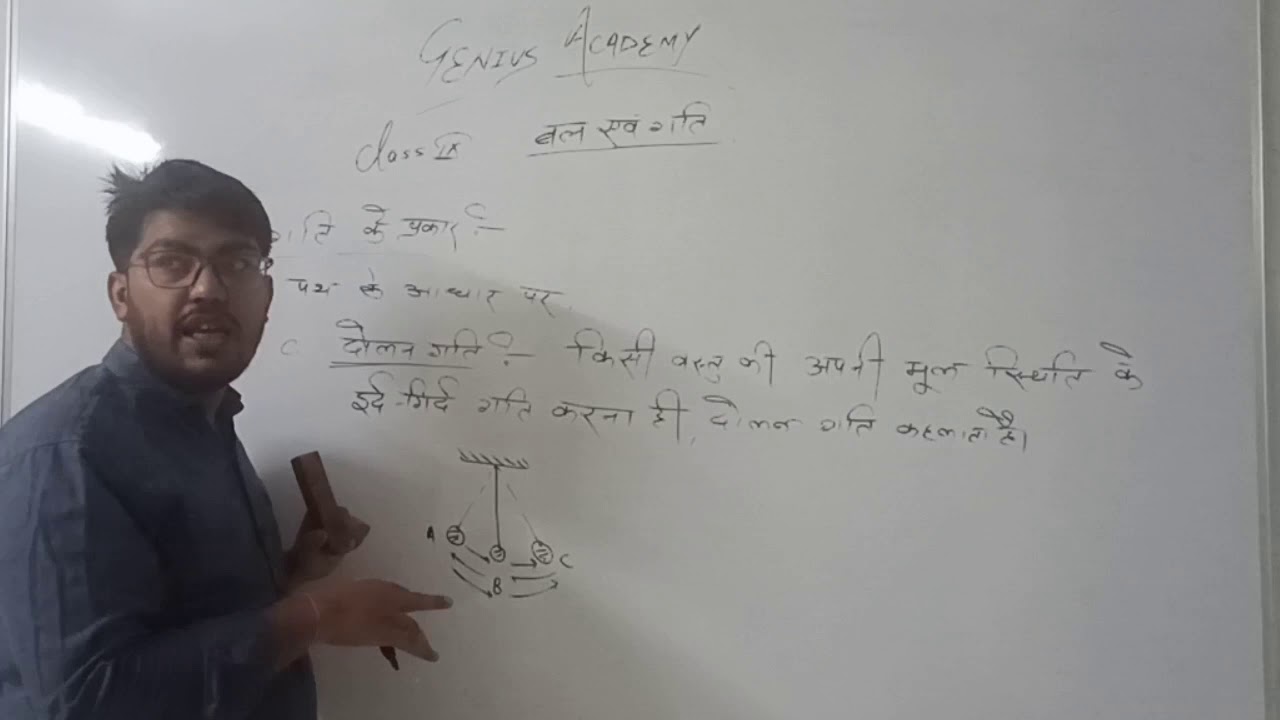 GENIUS ACADEMY
Class IX बल एवं गति
गति के प्रकार :-
पथ के आधार पर
C दोलन गति :- किसी वस्तु की अपनी मूल स्थिति के
इर्द-गिर्द गति करना ही, दोलन गति कहलाता है।
A
B
C